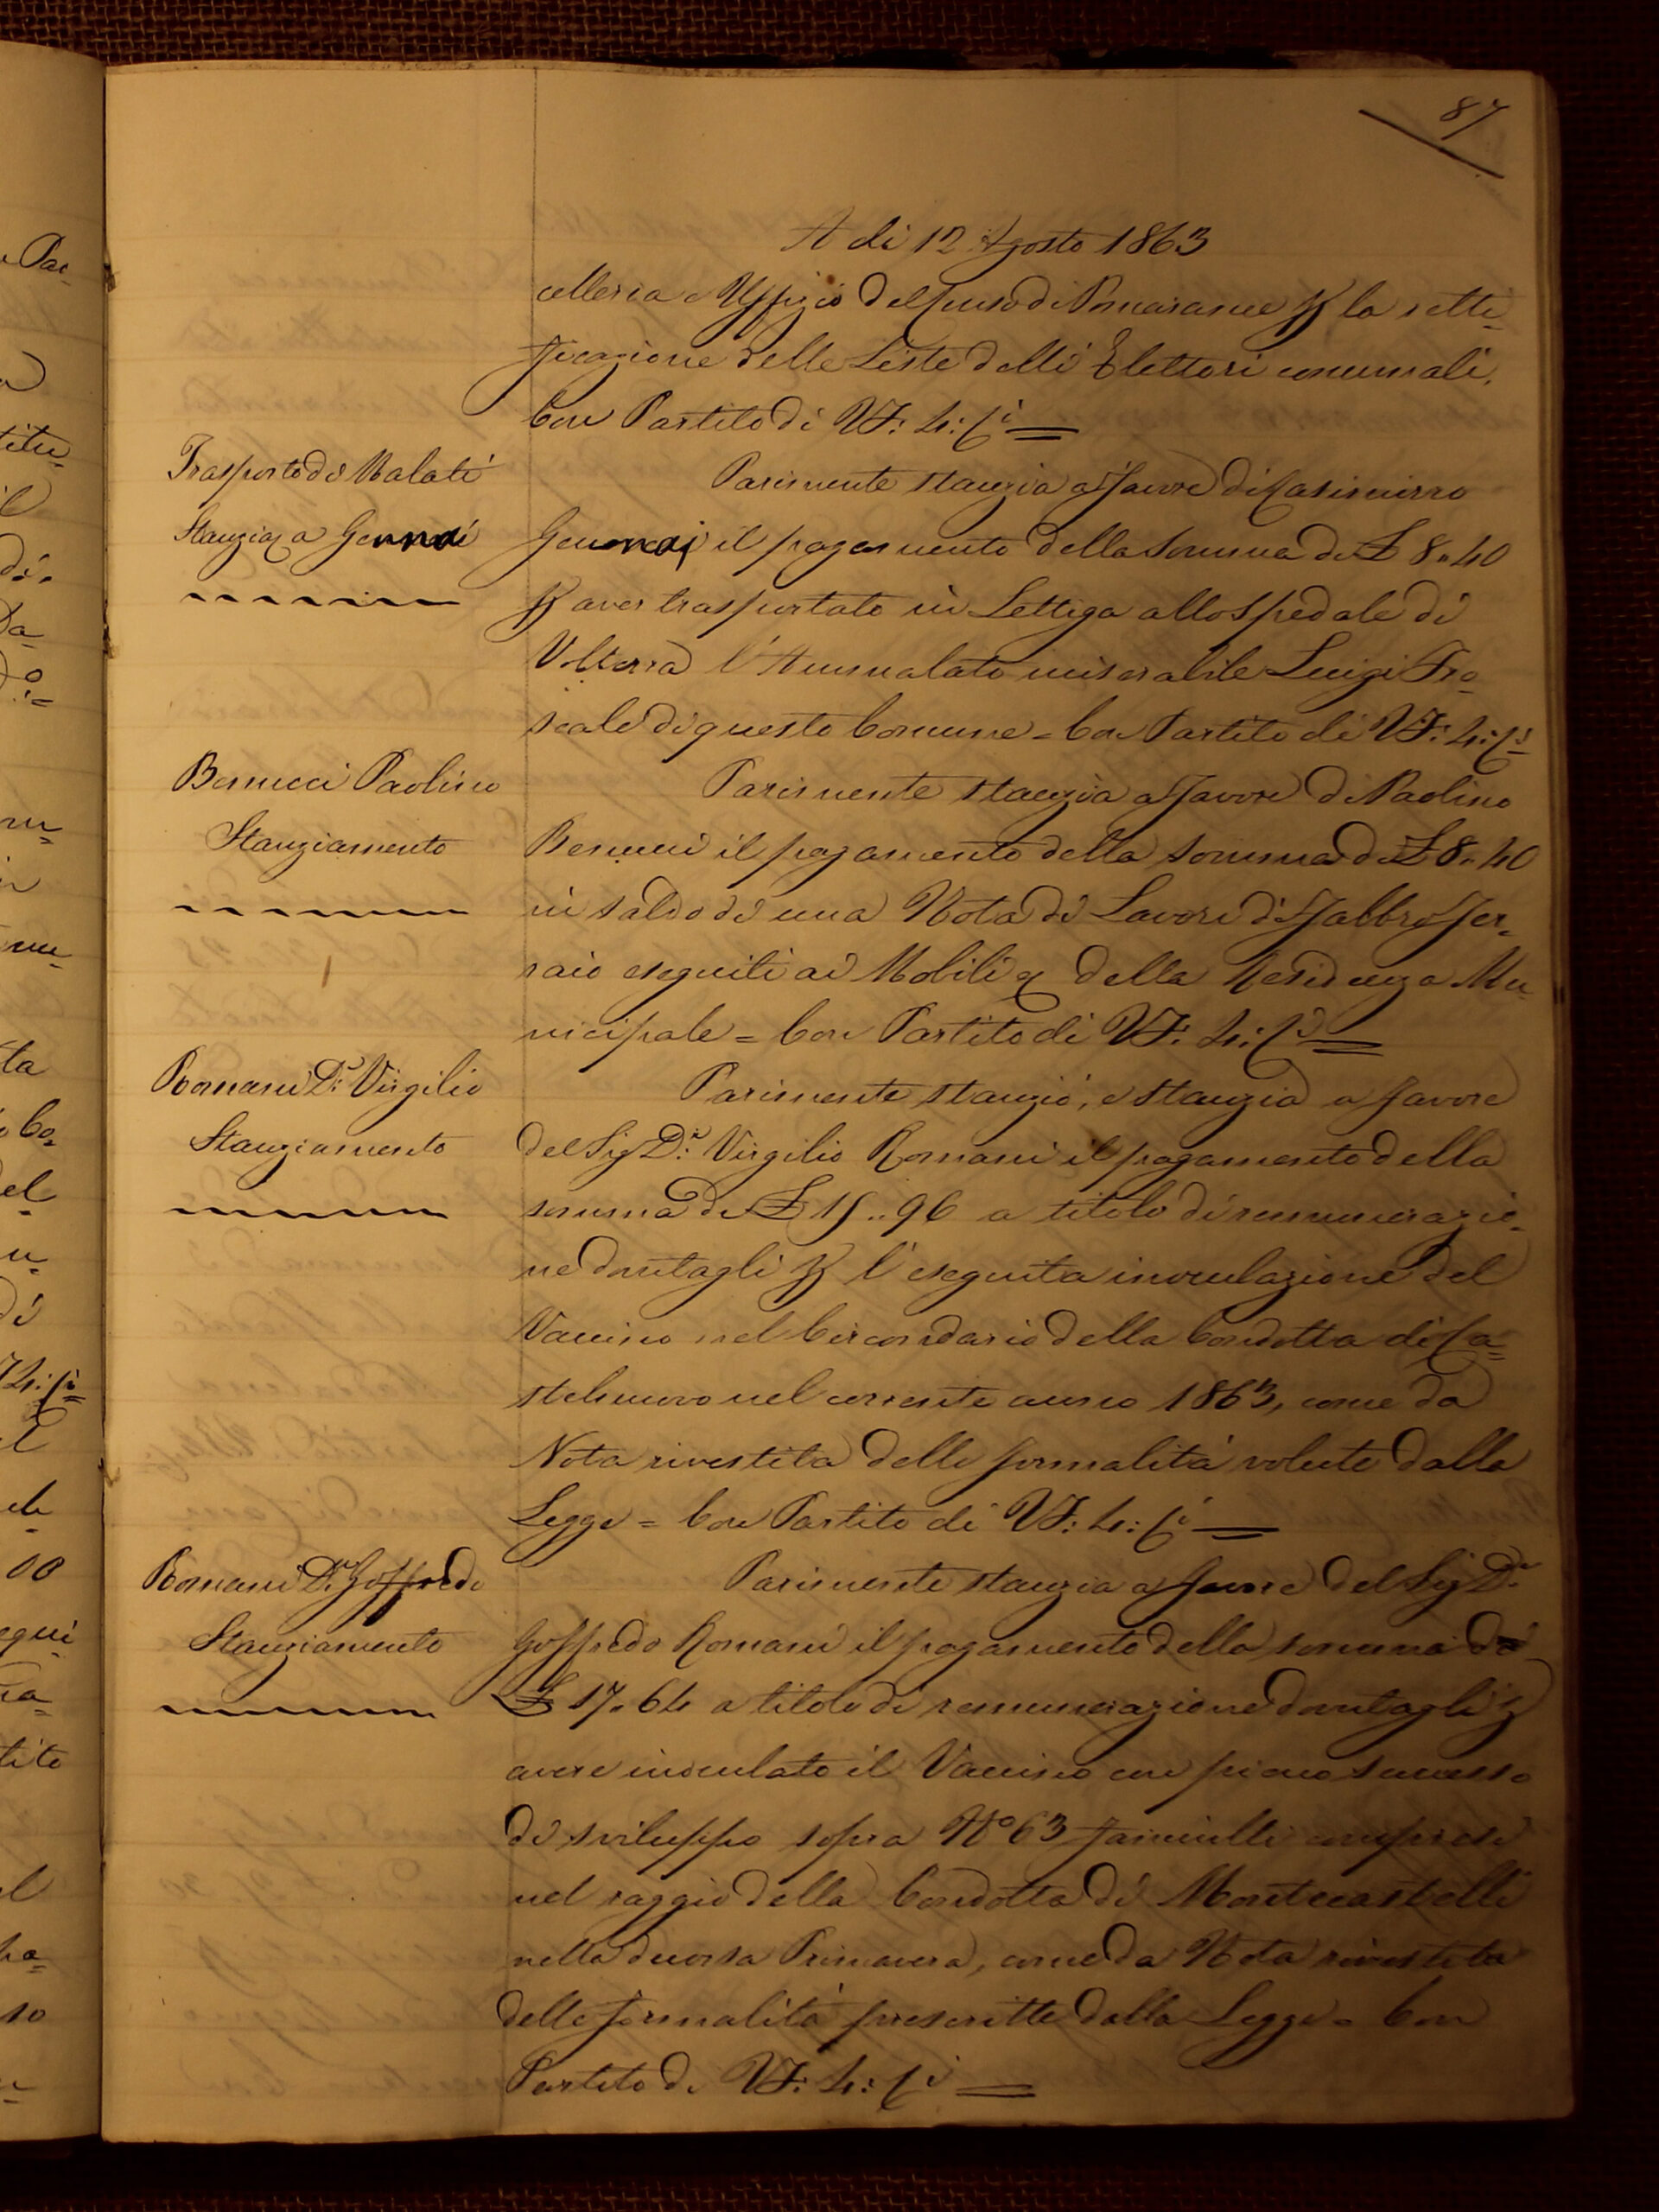 87
A dì 12 Agosto 1863
celleria e Uffizio del Censo di Pomarance p la retti-
ficazione delle Liste delli Elettori comunali.
Con Partito di VF: 4: Ci
Trasporto di Malati
Stanziaz a Gennai
Parimente stanzia a favore di Casimirro
Gennai il pagamento della somma di £ 8. 40
p aver trasportato in Lettiga allo Spedale di
Volterra l'Ammalato miserabile Luigi Fro-
sali di questo Comune = Con Partito di VF: 4: Ci
Benucci Paolino
Stanziamento
Parimente stanzia a favore di Paolino
Benucci il pagamento della somma di £ 8. 40
in saldo di una Nota di Lavori di Fabbro Fer-
raio eseguiti ai Mobili della Residenza Mu-
nicipale = Con Partito di VF: 4: Ci
Romani Dr. Virgilio
Stanziamento
Parimente stanziò, e stanzia a favore
del Sig Dr. Virgilio Romani il pagamento della
somma di £ 15.. 96 a titolo di remunerazio-
ne dovutagli p l'eseguita inoculazione del
Vaccino nel Circondario della Condotta di Ca-
stelnuovo nel corrente anno 1863, come da
Nota rivestita delle formalità volute dalla
Legge = Con Partito di VF: 4: Ci
Romani Dr. Goffredo
Stanziamento
Parimente stanzia a favore del Sig Dr.
Goffredo Romani il pagamento della somma di
£ 17. 64 a titolo di remunerazione dovutagli p
avere inoculato il Vaccino con pieno successo
di sviluppo sopra No 63 Fanciulli compresi
nel raggio della Condotta di Montecastelli
nella decorsa Primavera, come da Nota rivestita
delle formalità prescritte dalla Legge = Con
Partito di VF: 4: Ci